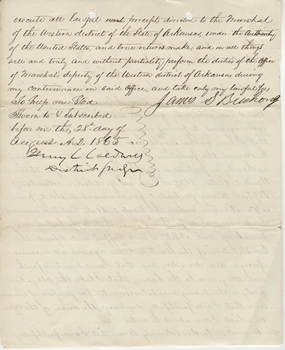 execute all lawful precepts directed to the Marshal
of the Western district of the State of Arkansas, under the Authority
of the United States, and true returns make, and in all things
well and truly and without partiality perform the duties of the Office
of Marshals deputy of the Western district of Arkansas during
my continuance in said Office, and take only my lawful fees
So help me God
James S
Sworn to & subscribed
before me this 28th day of
August A.D. 1865
Henry C Caldwell
District Judge